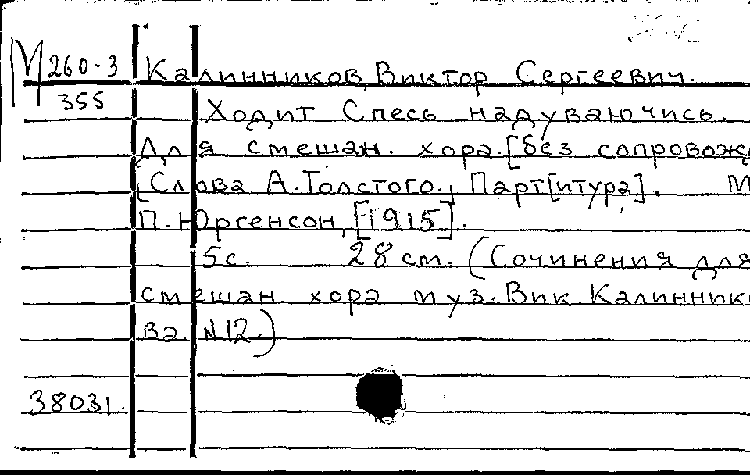 М 260-3 Калинников, Виктор Сергеевич.
355 Ходит Спесь надуваючись.
Для смешан. хора. [без сопровожд
[Слова А. Толстого., Парт[итура]. М
П. Юргенсон, [1915].
5с. 28 см. (Сочинения для
смешан хора муз. Вик Калиннико
ва. №12.)
38031.